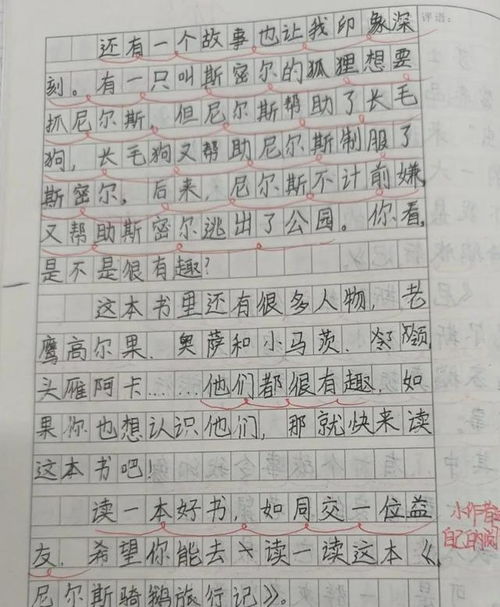 评语:
还有一个故事也让我印象深
刻。有一只叫斯密尔的狐狸想要
抓尼尔斯，但尼尔斯帮助了长毛
狗，长毛狗又帮助尼尔斯制服了
斯密尔。后来，尼尔斯不计前嫌，
又帮助斯密尔逃出了公园。你看，
是不是很有趣？
这本书里还有很多人物，老
鹰高尔果、奥萨和小马茨、领
头雁阿卡……他们都很有趣，如
果你也想认识他们，那就快来读
这本书吧！
读一本好书，如同交一位益
友，希望你能去读一读这本《
尼尔斯骑鹅旅行记》。
小作者
自己的阅